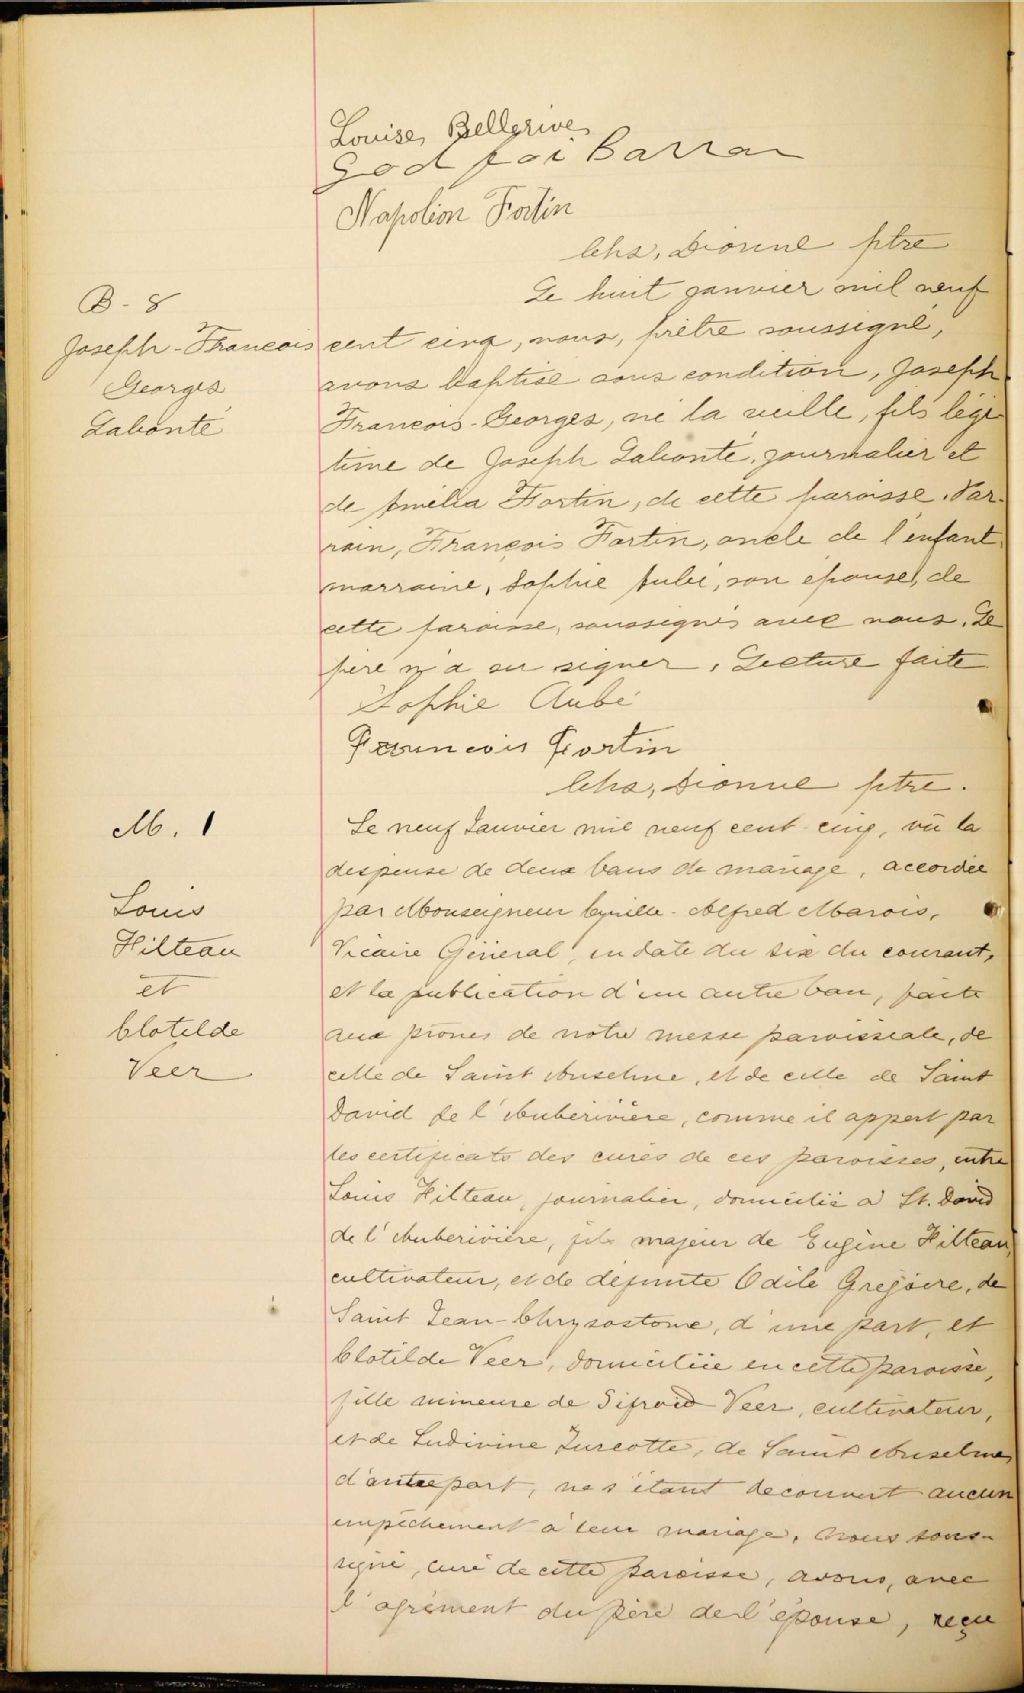 Louise Bellerive
Godfroi Barra
Napoléon Fortin
Chs. Dionne ptre
B - 8
Joseph-François
Georges
Labonté
Le huit janvier mil neuf
cent cinq, nous, prêtre soussigné,
avons baptisé sous condition, Joseph
François-Georges, né la veille, fils légi-
time de Joseph Labonté, journalier et
de Amélia Fortin, de cette paroisse. Par-
rain, François Fortin, oncle de l'enfant,
marraine, Sophie Aubé, son épouse, de
cette paroisse, soussignés avec nous. Le
père n'a su signer. Lecture faite
Sophie Aubé
Francois Fortin
Chs. Dionne ptre.
M. 1
Louis
Filteau
et
Clotilde
Veer
Le neuf Janvier mil neuf cent cinq, vû la
dispense de deux bans de mariage, accordée
par Monseigneur Cyrille-Alfred Marois,
Vicaire Général, en date du six du courant,
et la publication d'un autre ban, faite
aux prônes de notre messe paroissiale, de
celle de Saint Anselme, et de celle de Saint
David de l'Auberivière, comme il appert par
les certificats des curés de ces paroisses, entre
Louis Filteau, journalier, domicilié à St. David
de l'Auberivière, fils majeur de Eugène Filteau,
cultivateur, et de défunte Odile Grégoire, de
Saint Jean-Chrysostome, d'une part, et
Clotilde Veer, domiciliée en cette paroisse,
fille mineure de Sifroid Veer, cultivateur,
et de Ludivine Turcotte, de Saint Anselme
d'autre part, ne s'étant découvert aucun
empêchement à leur mariage, nous sous-
signé, curé de cette paroisse, avons, avec
l'agrément du père de l'épouse, reçu